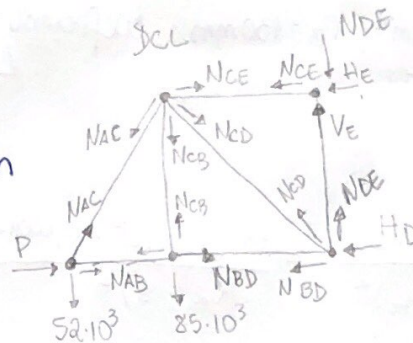 DCL
NDE
NCE NCE HE
NAC NCD VE
NCB
NAC NCB NCD NDE
P HD
NAB NBD NBD
52·10³ 85·10³